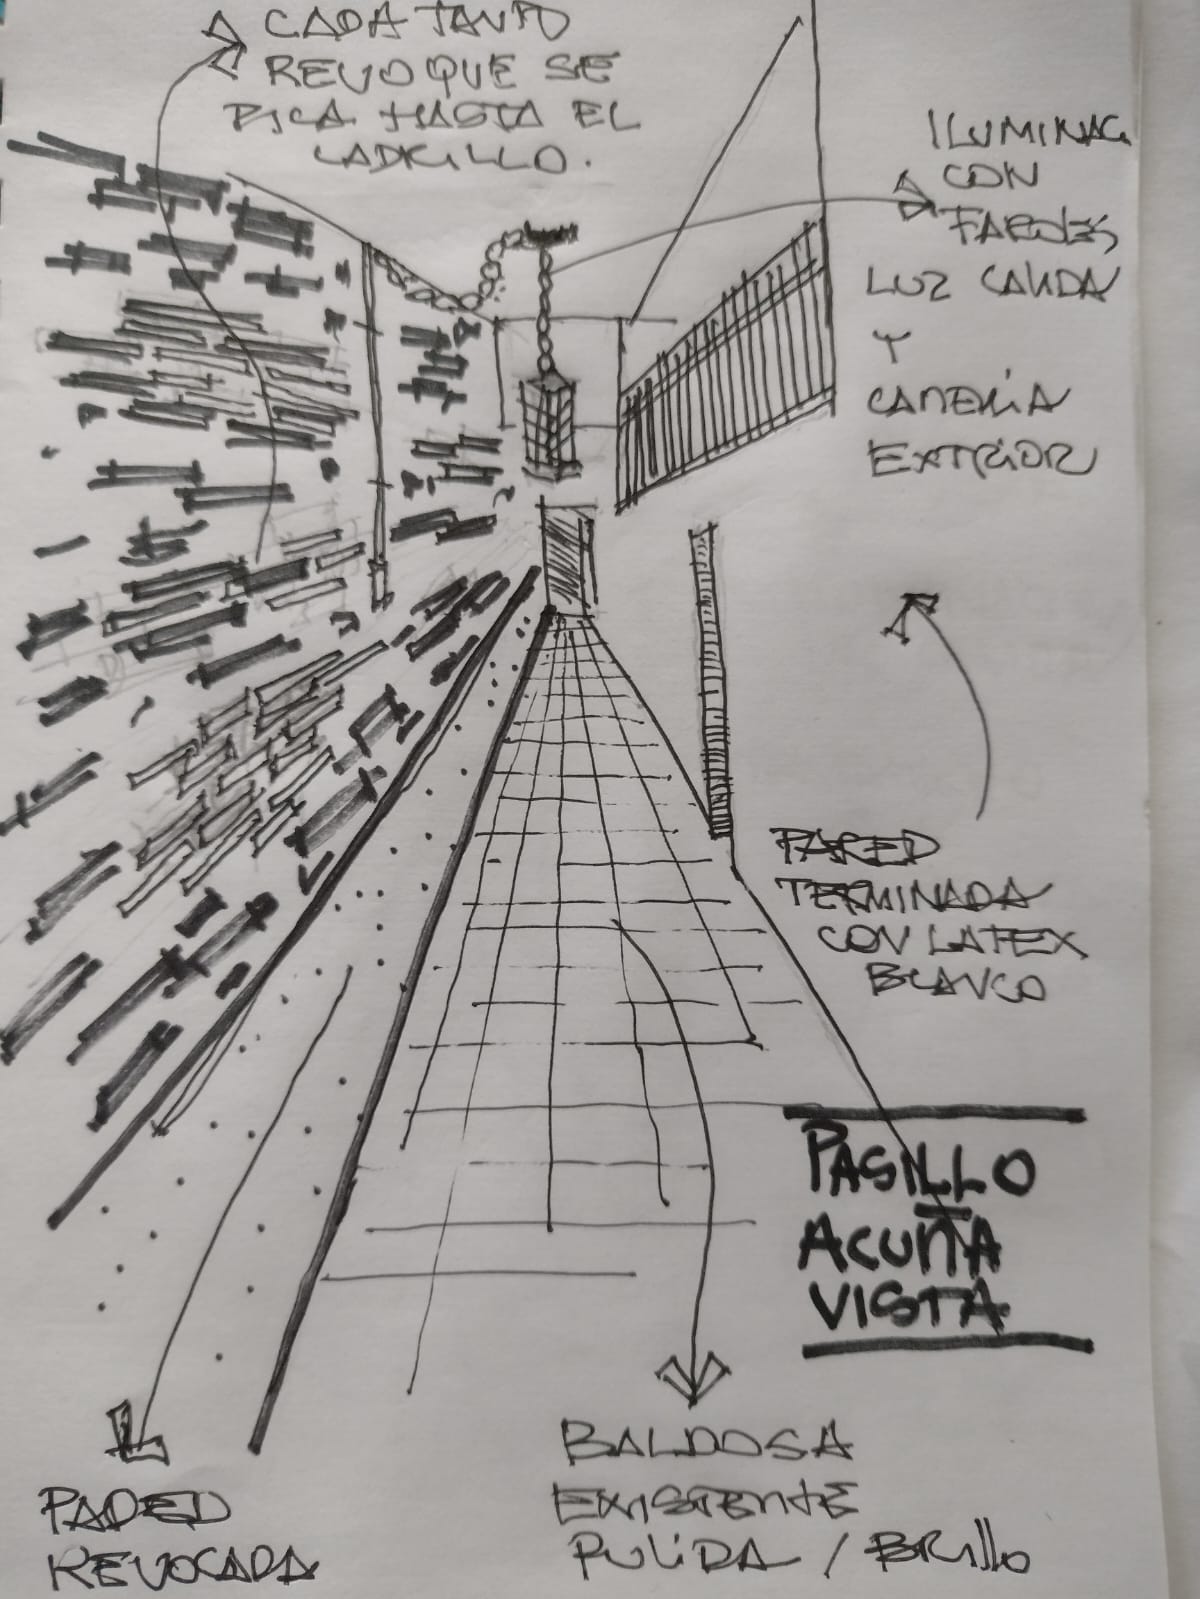 CADA TANTO
REVOQUE SE
PICA HASTA EL
LADRILLO.
ILUMINAC
CON
FAROLES
LUZ CALIDA
Y
CAÑERIA
EXTERIOR
PARED
TERMINADA
CON LATEX
BLANCO
PASILLO
ACUÑA
VISTA
BALDOSA
EXISTENTE
PULIDA / BRILLO
PARED
REVOCADA